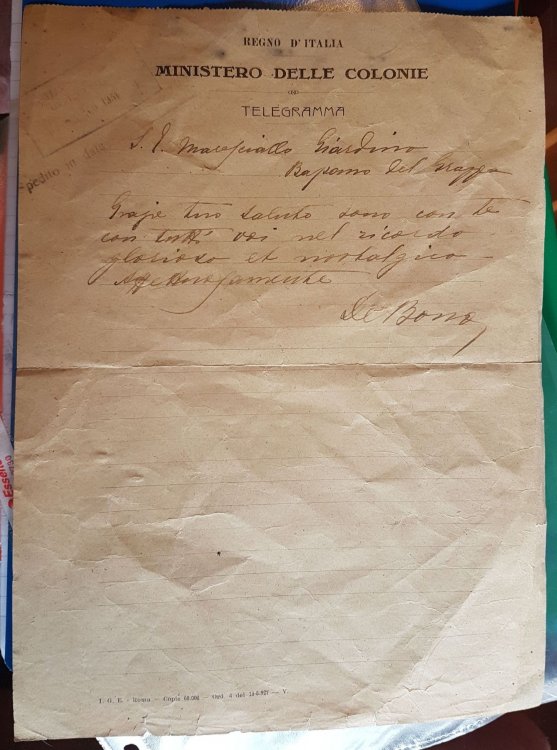 REGNO D'ITALIA
MINISTERO DELLE COLONIE
TELEGRAMMA
spedito in data
S. E. Maresciallo Giardino
Bassano del Grappa
Grazie tuo saluto sono con te
con tutti voi nel ricordo
glorioso et nostalgico
Affettuosamente
De Bono
I. G. E. - Roma — Copie 60.000 — Ord. 4 del